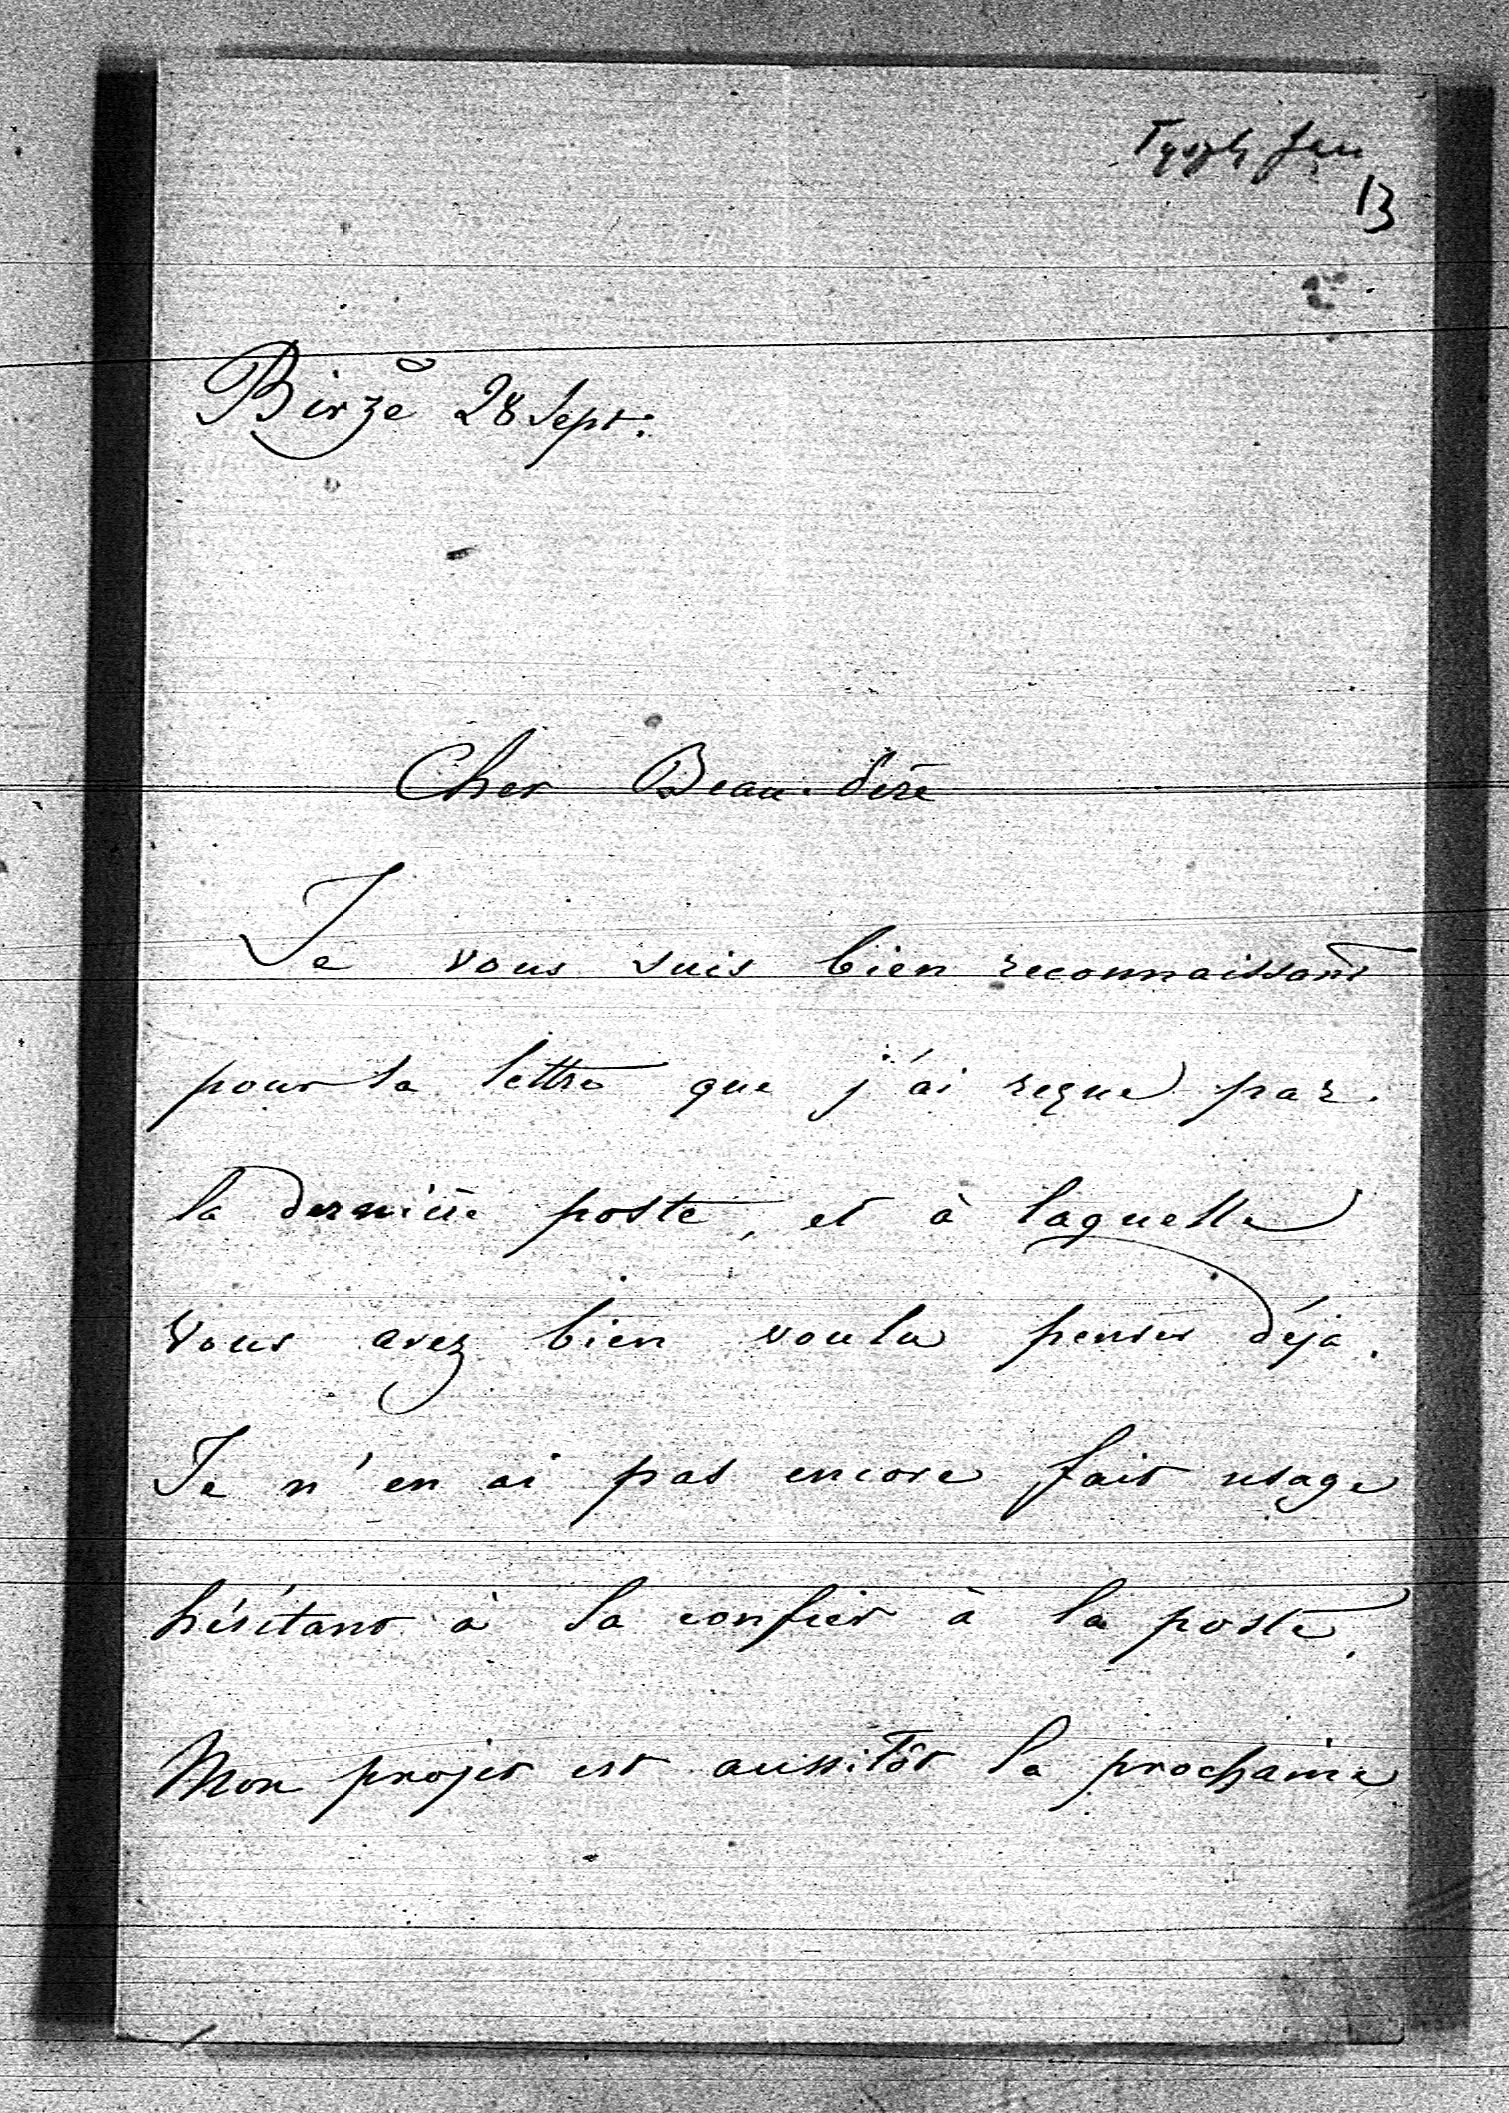 13
Birże 28 Sept.
Cher Beau-Père
Je vous suis bien reconnaissant
pour la lettre que j'ai reçue par
la dernière poste, et à laquelle
vous avez bien voulu penser déja.
Je n'en ai pas encore fait usage
hésitant à la confier à la poste.
Mon projet est aussitôt la prochaine